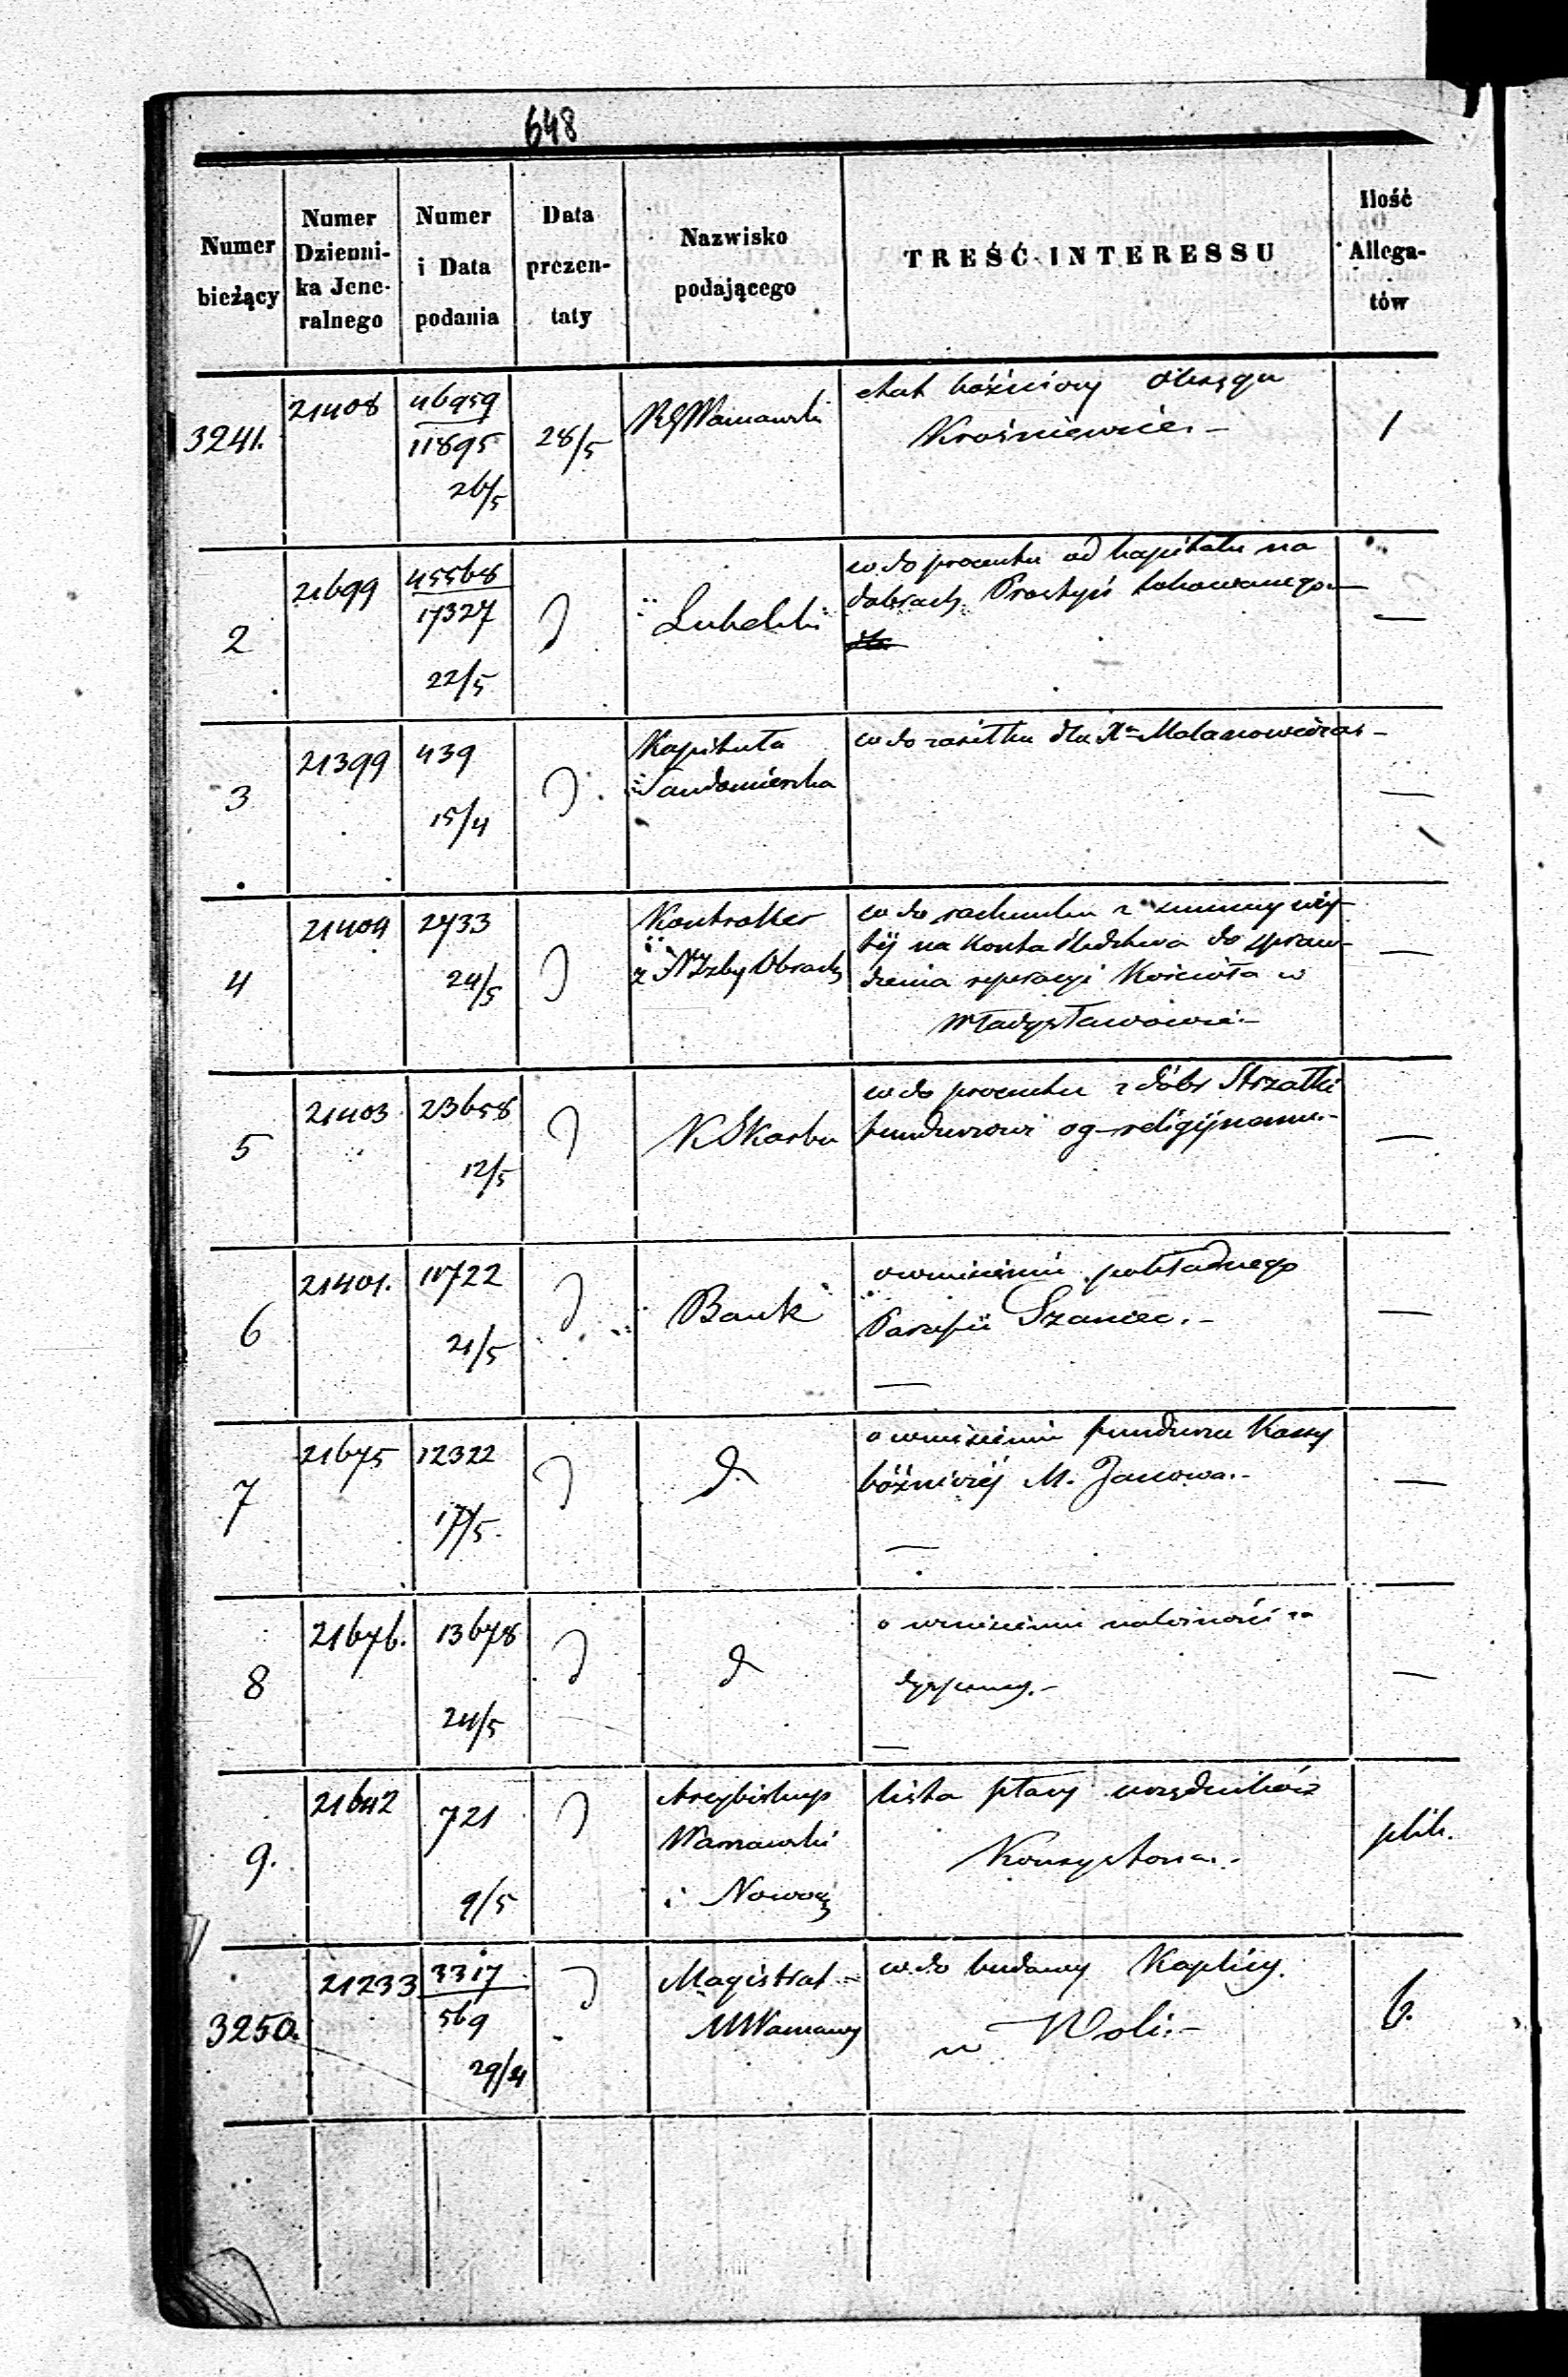 648
Numer bieżący
Numer Dzienni-
ka Jene-
ralnego
Numer i Data podania
Data prezen-
taty
Nazwisko podającego
TREŚĆ INTERESSU
Ilość Allega-
tów
3241.
21408
46959
11895
26/5
28/5
RGWarszawski
etat bóżniczy Okręgu
Krośniewice.–
1
2
21699
45568
17327
22/5
Lubelski
w do procentu od kapitału na
dobrach Prostyń lokowanego
—
3
21399
439
15/4
Kapituła
Sandomierska
w do zasiłku dla Xa
—
4
21404
2733
24/5
Kontroller
z NIzby Obrach
w do rachunku z summy
na Konta do spraw-
dzenia reperacyi Kościoła w
Władysławowie.–
—
5
21403
23658
12/5
KSkarbu
w do procentu z dóbr Strzałki
funduszowi og–religijnemu.–
—
6
21401.
11722
21/5
Bank
o wniesieniu pokładnego
Parafii Szaniec.–
—
7
21675
12322
17/5.
d.
o wniesieniu funduszu Kassy
bóżniczéj M. Janowa.–
—
8
21676.
13678
24/5
d
o wniesieniu należności za
dyspensy.–
—
9.
21642
721
9/5
Arcybiskup
Warszawski
i Nowow
lista płacy urzędników
Konsystorza.–
plik.
3250.
21233
3317
569
29/4
Magistrat
MWarszawy
w do budowy Kaplicy
w Woli.–
6.